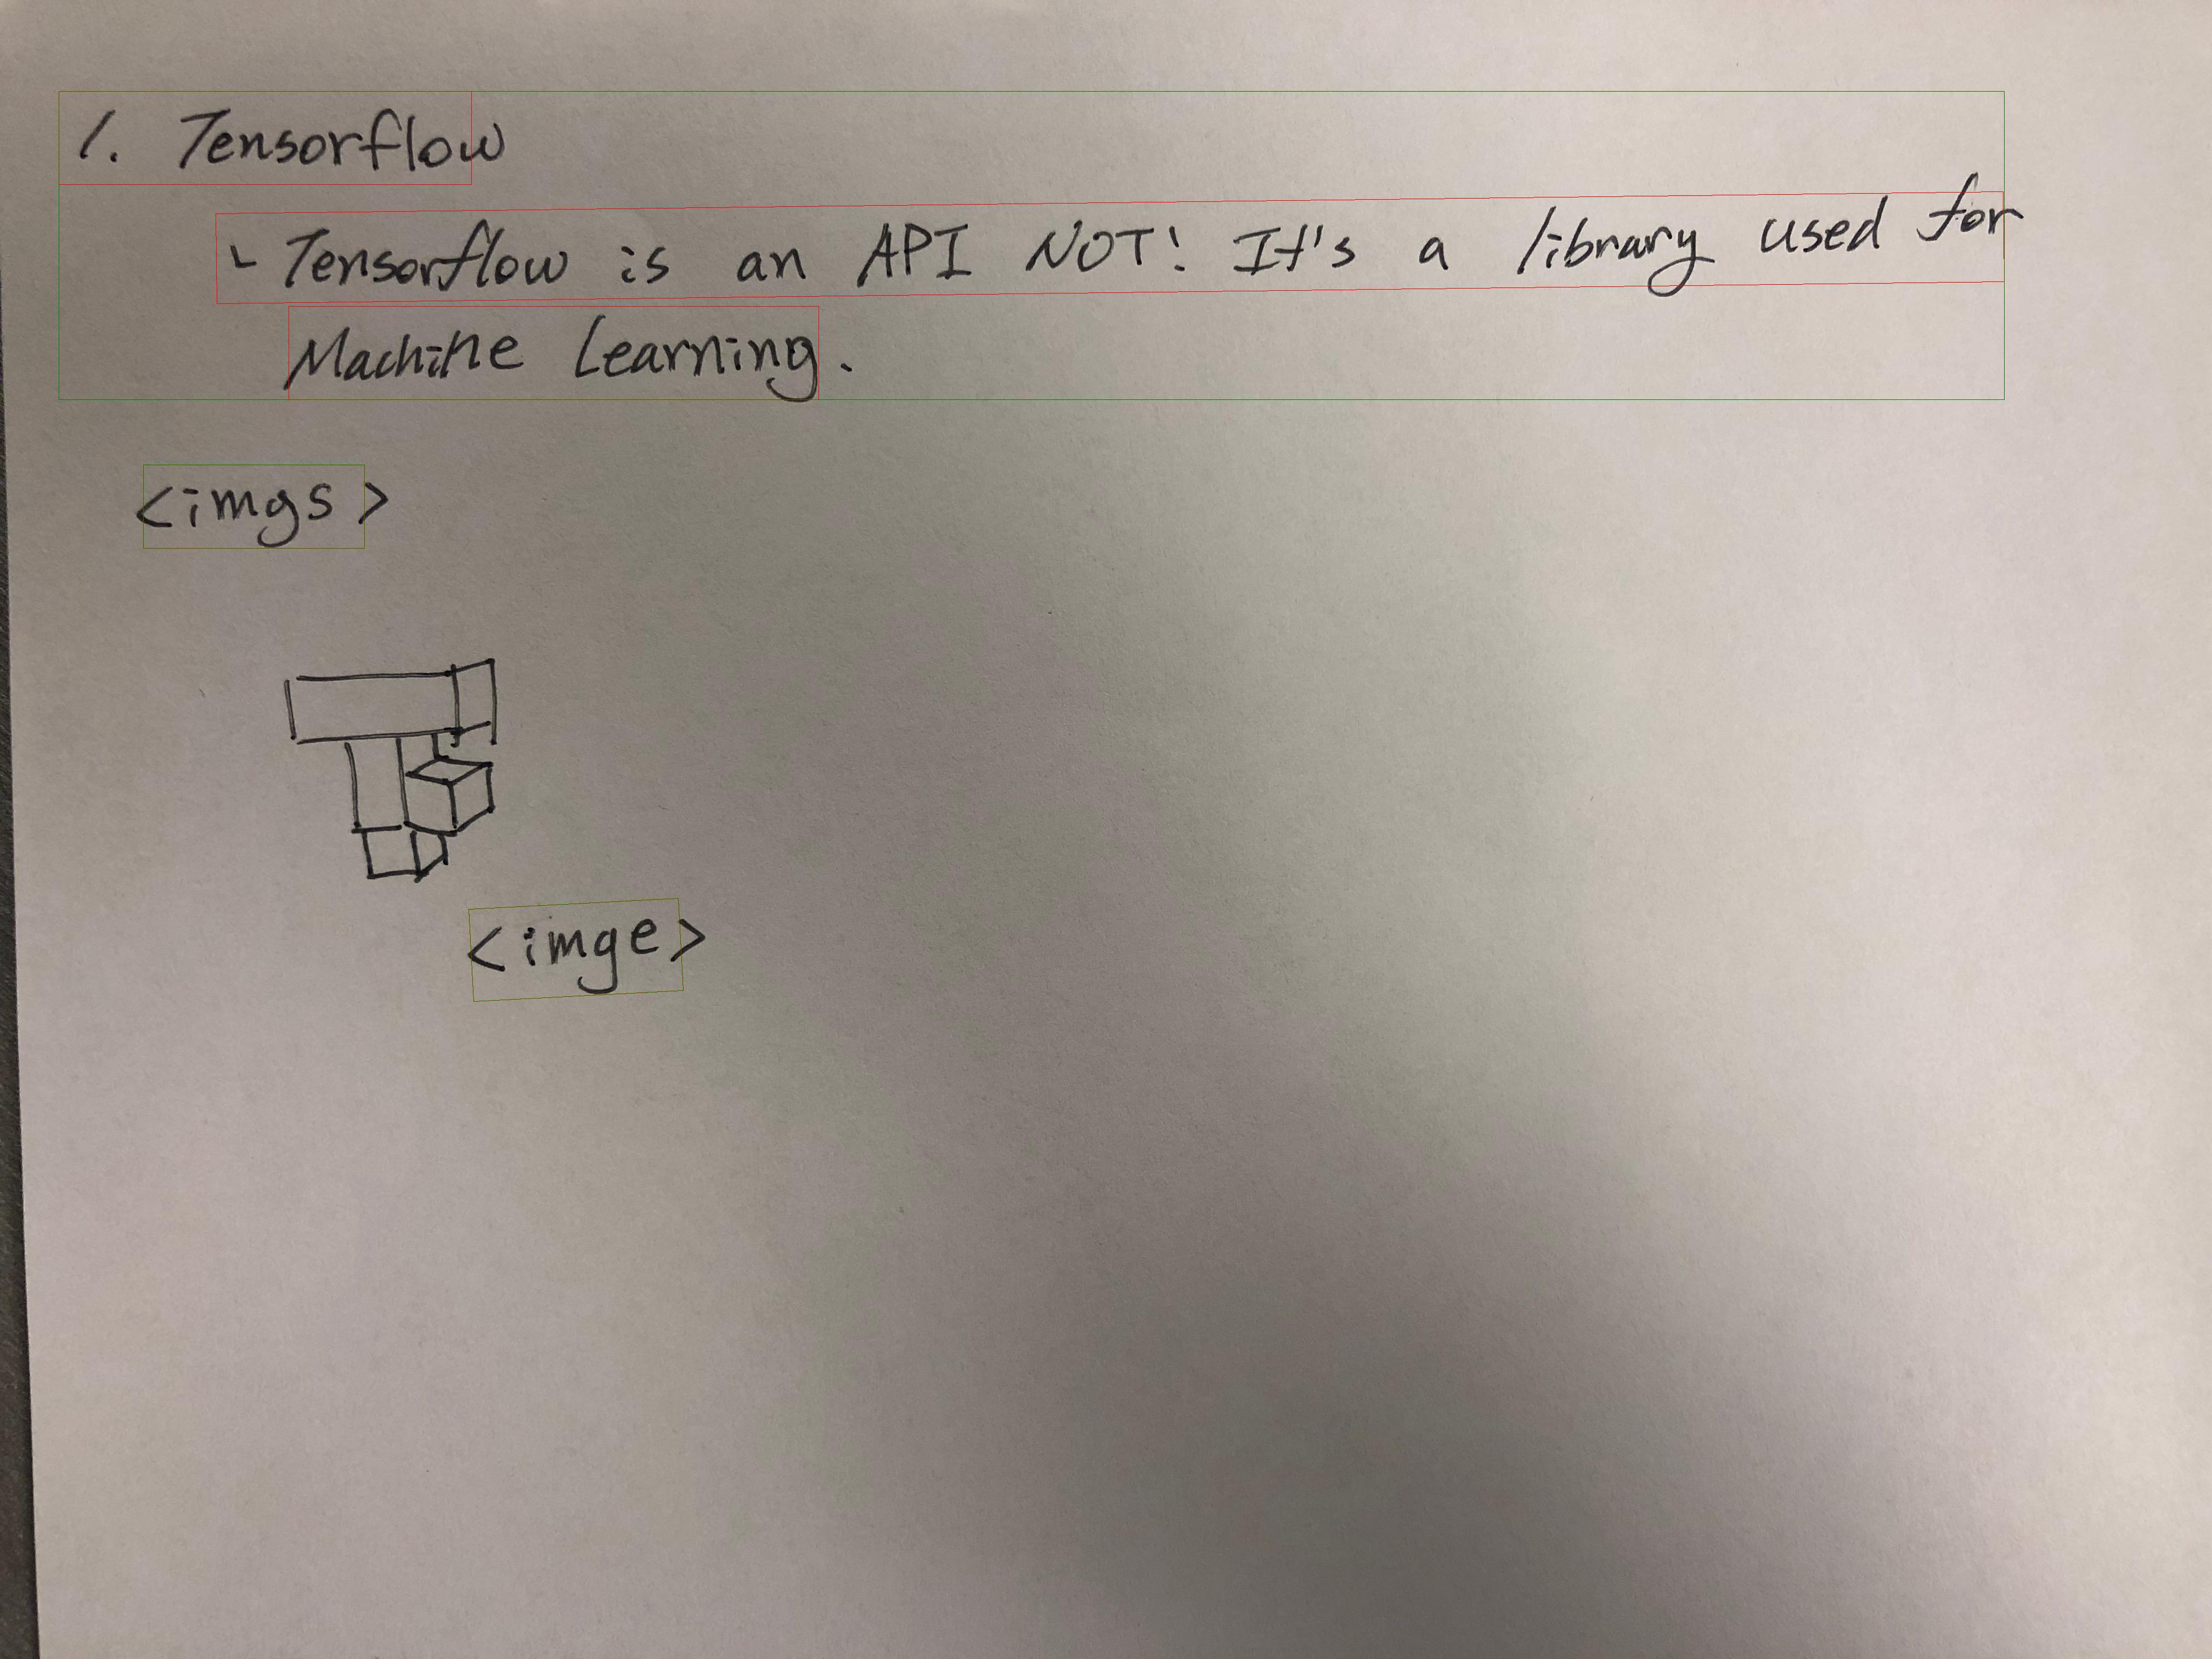 1. Tensorflow
- Tensorflow is an API NOT! It's a library used for
Machine Learning.
<imgs>
<imge>